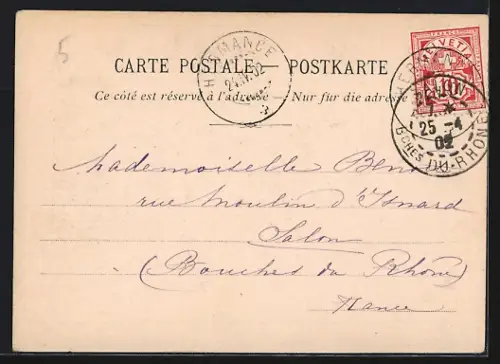 5
CARTE POSTALE — POSTKARTE
Ce côté est réservé à l'adresse Nur für die adresse
HERMANCE
24.IV.02
HELVETIA
FRANCO
SALON
25 -4
02
BCHES DU-RHONE
Mademoiselle
rue Moulin d'Isnard
Salon
(Bouches du Rhône)
France